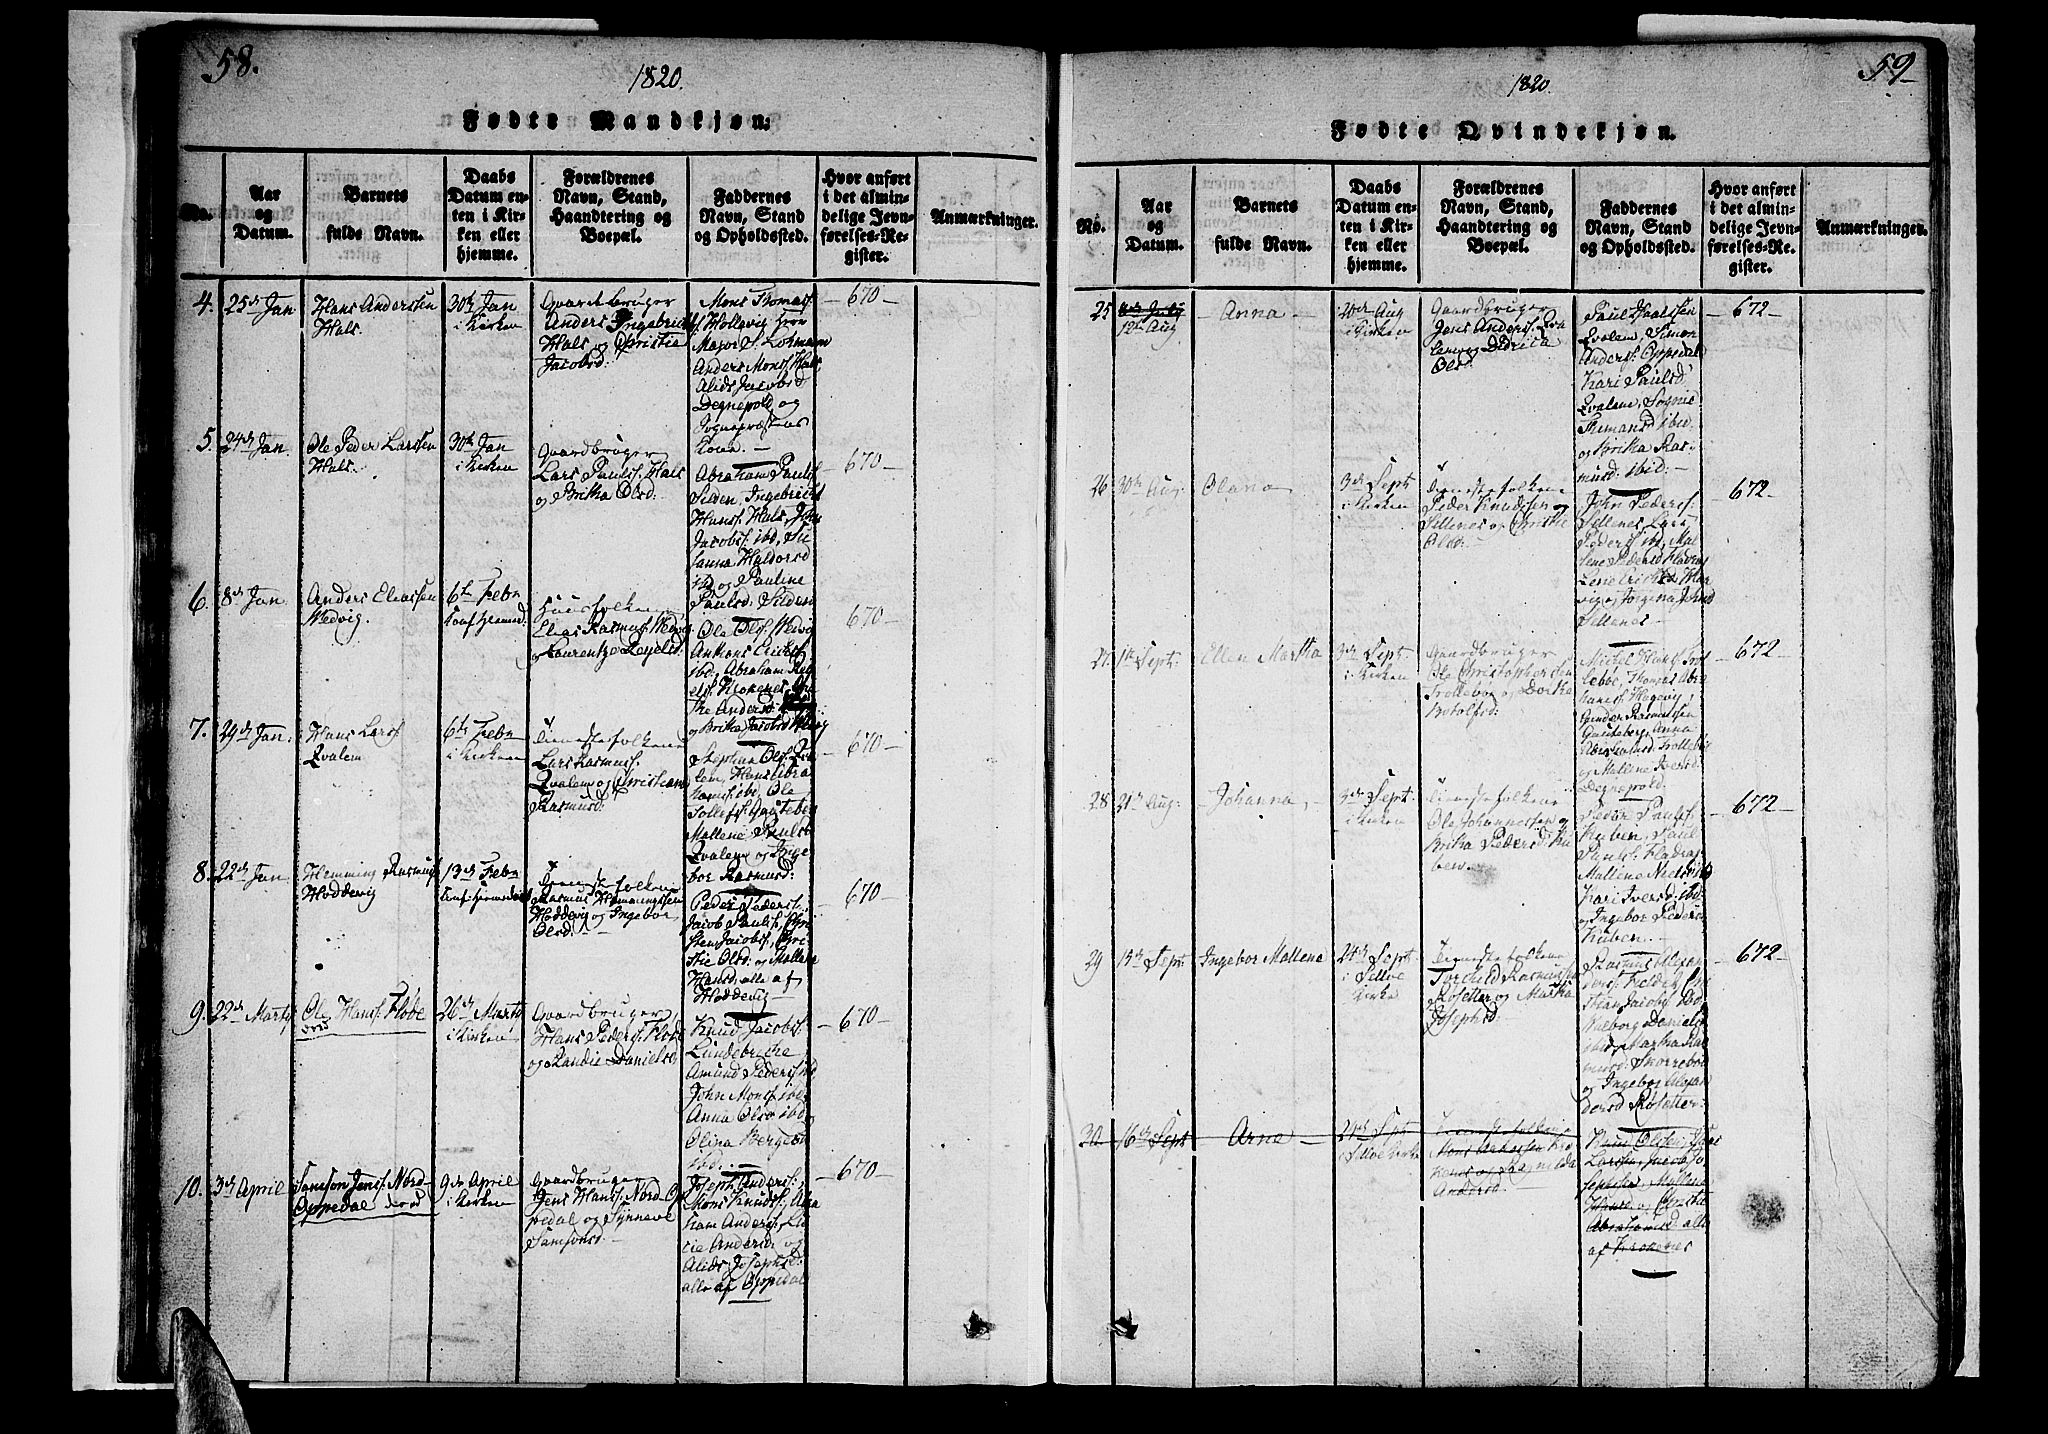 58.
1820.
Fødte Mandkjøn.
No.
Aar
og
Datum.
Barnets
fulde Navn.
Daabs
Datum en-
ten i Kir-
ken eller
hjemme.
Forældrenes
Navn, Stand,
Haandtering og
Boepæl.
Faddernes
Navn, Stand
og Opholdssted.
Hvor anført
i det almin-
delige Jevn-
førelses-Re-
gister.
Anmærkninger.
4.
25de Jan
Hans Andersen
Hals.
30te Jan
i Kirken
Gaardbruger
Anders Ingebrigts
Hals og Christie
Jacobsd:
Mons Thomass
Major S. Lohmann
Anders Monss. Hals,
Alids Jacobsd
Degnepold og
Sognepræstens
Kone.
670
5.
24de Jan
Ole Peder Larssen
Hals.
30te Jan
i Kirken
Gaardbruger
Lars Paulss. Hals
og Britha Olsd:
Abraham Paulss
Silden, Ingebrigt
Hanss. Hals, John
Jacobss. ibd, Su
sanna Haldorsd
ibd og Pauline
Paulsd: Silden
670
6.
8de Jan
Anders Eliassen
Wedvig.
6te Febr
Huusfolkene
Elias Rasmuss. Wedvig
og Laurentze
Ole Olss. Wedvig
Anthons
ibd, Abraham
Krokenes,
the Andersd
og Britha Jacobsd
670
7.
29de Jan:
Hans Larss
Qvalem
6te Febr
i Kirken
Tienestefolkene
Lars Rasmuss.
Qvalem og Christiana
Rasmusd:
Stephen Olss. Qva
len, Hans Abra
hamss. ibd, Ole
Tollefss. Gauteberg
Mallene Paulsd
Qvalem og Inge
bor Rasmusd:
670
8.
22de Jan
Hemming Rasmuss
Hoddevig
13de Febr
Tienestefolkene
Rasmus Hemmingssen
Hoddevig og Ingebor
Olsd:
Peder Peders.
Jacob Paulss, Chri
sten Jacobss, Chri
stie Olsd: og Mallene
Hansd, alle af
Hoddevig
670
9.
22de Marty
Ole Hanss. Flode
26de Marty
i Kirken
Gaardbruger,
Hans Pederss. Flode
og Randie Danielsd
Knud Jacobss.
Lundebrekke
Amund Pederss ibd,
John Monss ibd
Anna Olsd ibd
Olina Bergetd
ibd.
670
10.
3de April
Samson Jenss. Nord-
Oppedal
9de April
i Kirken
Gaardbruger
Jens Hanss. Nord-Op
pedal og Synneve
Samsonsd.
Joseph Anderss.,
Mons Knudss., Abra
ham Anderss, Lu
cie Andersd. og
Alids Josephsd.
alle af Oppedal
670
59
1820.
Fødte Qvindekjøn.
No.
Aar
og
Datum.
Barnets
fulde Navn.
Daabs
Datum en-
ten i Kir-
ken eller
hjemme.
Forældrenes
Navn, Stand,
Haandtering og
Boepæl.
Faddernes
Navn, Stand
og Opholdssted.
Hvor anført
i det almin-
delige Jevn-
førelses-Re-
gister.
Anmærkninger.
25
12te Aug
Anna
20de Aug
i Kirken
Gaardbruger
Jens Anderss. Qva
len og Didrica
Olsd:
Paul Paulssen
Qvalem, Simon
Anderss. Oppedal
Kari Paulsd
Qvalene, Sogne
Præmand ibid.
og Britha Ras
musd: ibid:
672
26
30te Aug.
Olana
3de Sept
i Kirken
Tienestefolkene
Peder Knudssen og
Sellenes og Christie
Olsd:
John Pederss.
Sellenes, Lars
Pederss. ibd, Mal
lene Pedersd
Lene
vig og Jorgena Johnsd
Sellenes
672
27.
1te Sept:
Ellen Martha
3de Sept
i Kirken
Gaardbruger
Ole Christophersen
Trollebøe og Dorthe
Botolfsd:
Michel Hanss. Trol
lebøe, Thomas Abra
hamss. Hagevig,
Gunder Rasmussen
Gauteberg, Anna
Abrahamsd: Trollebøe
og Mallene Iversd
Degnepold:
672
28
21de Aug:
Johanna
3de Sept
i Kirken
Tienestefolkene
Ole Johannessen og
Britha Pedersd: Ku
ben.
Peder Paulss.
Kuben, Paul
Paulss.
Mallene Nielsd ibd
Kari Iversd: ibd
og Ingebor Peders
Kuben.
672
29
15de Sept:
Ingebor Mallene
24de Sept
i Selløe
Kirke
Tienestefolkene
Torchild Rasmussen
Rosetter og Martha
Josephsd:
Rasmus Alexan
derss. Felde,
stian Jacobss.
Walborg Daniels
ibid, Martha Ras
musd: Skorrebøe
og Ingebor Alexan
dersd Rosetter:
672
30
16de Sept
Arne
24de Sept
i Selløe Kirke
Tienestefolkene
Mons
Andersd.
Larssen, Jacob Jo
sephssen, Mallene
Hansd. og Christie
Abrahamsd: alle
af Krokenes